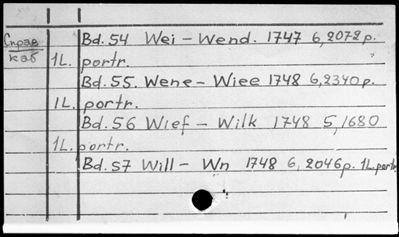 Bd. 54 Wei - Wend. 1747 6, 2072 p.
Справ
каб
1L. portr.
Bd. 55. Wene - Wiee 1748 6, 2340 p.
1L. portr.
Bd. 56 Wief - Wilk 1748 5, 1680
1L. portr.
Bd. 57 Will - Wn 1748 6, 2046 p. 1L. portr